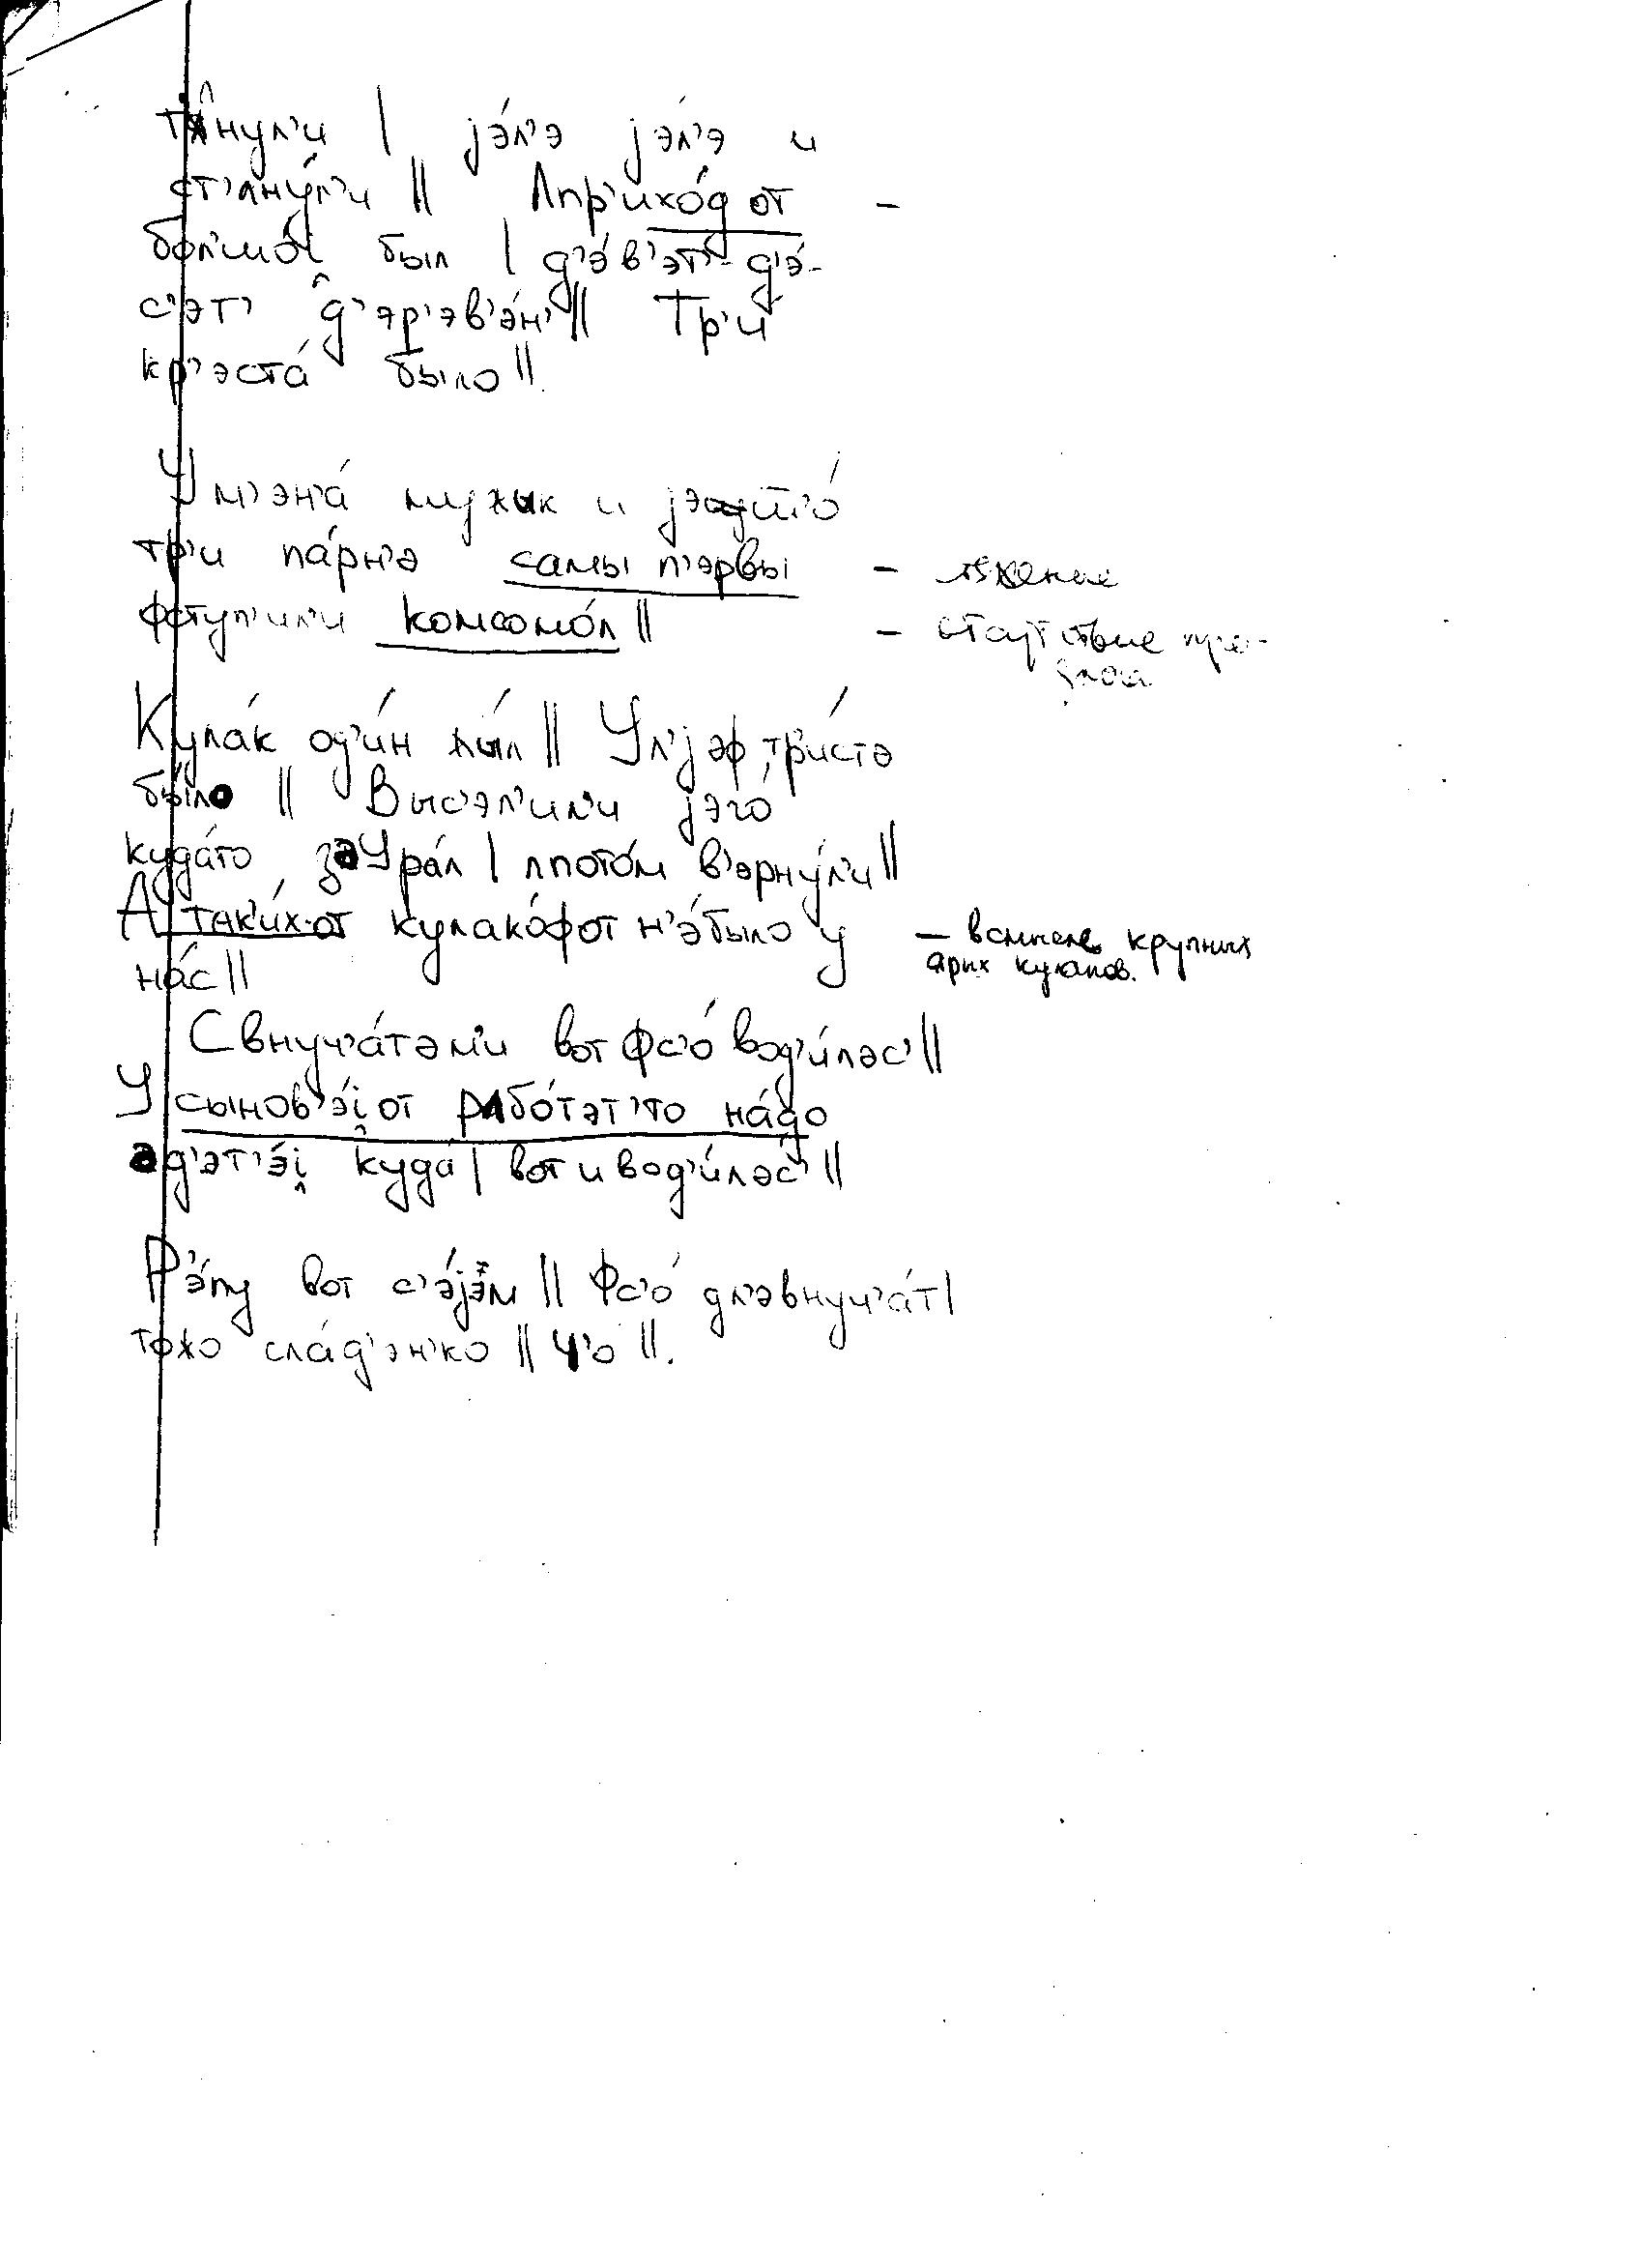 т'нул'и | jэ́л'э jэ́л'э и
ст'лну́л'и || Лпр'ихо́д от –
бол'шо́i̯ был | д'э́в'эт'-д'э́-
с'эт' д'эр'эв'э́н' || Тр'и
кр'эста́ было ||
Ум'эн'а́ мужик и jэшт'о́
тр'и па́рн'э самы п'эрвы –
фступ'ил'и комсомо́л || – отсутствие пред-
лога
Кула́к од'и́н жы́л || Ул'jэф, тр'и́стə
бы́ло || Выс'эл'ил'и jэго́
куда́то зəУра́л | лпото́м в'эрну́л'и ||
А так'и́х-от кулако́фот н'э́было у – в смысле крупных
на́с || ярых кулаков.
Свнуч'а́тəм'и вот фс'о́ вод'и́лəс' ||
У сынов'э́i̯ от рлбо́тэт'то на́до
əд'эт'э́i̯ куда́ | вот и вод'и́лəс' ||
Р'э́пу вот с'э́jэм || Фс'о́ дл'əвнуч'а́т |
тожо сла́д'эн'ко || Ч'о ||.